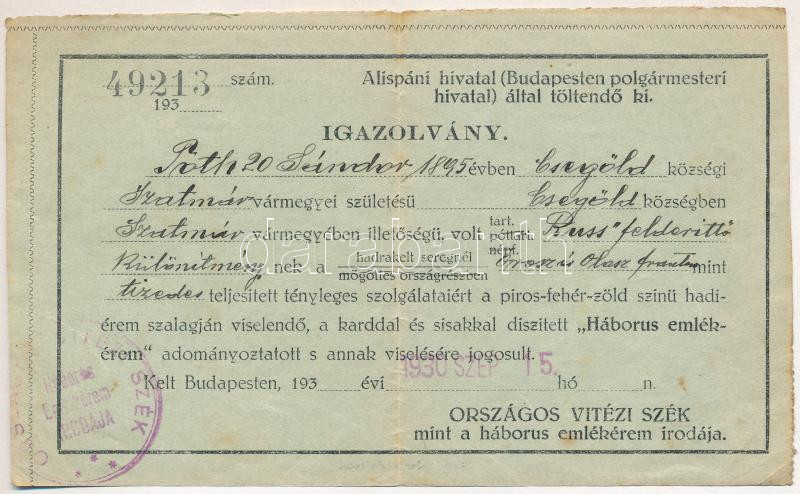 49213 szám.
193
Alispáni hivatal (Budapesten polgármesteri
hivatal) által töltendő ki.
IGAZOLVÁNY.
Póth 20 Sándor 1895 évben Csegöld községi
Szatmár vármegyei születésü Csegöld községben
Szatmár vármegyében illetőségű, volt tart. póttart. népf. "Russ" felderittő
Különitmény nek a hadrakelt seregnél mögöttes országrészben Orosz és Olasz fronton mint
tizedes teljesitett tényleges szolgálataiért a piros-fehér-zöld szinü hadi-
érem szalagján viselendő, a karddal és sisakkal diszitett „Háborus emlék-
érem" adományoztatott s annak viselésére jogosult.
Kelt Budapesten, 193 évi 1930 SZEP 15. hó n.
ORSZÁGOS VITÉZI SZÉK
mint a háborus emlékérem irodája.
ORSZÁGOS VITÉZI SZÉK
Háborus
Emlékérem
IRODÁJA
darabanth